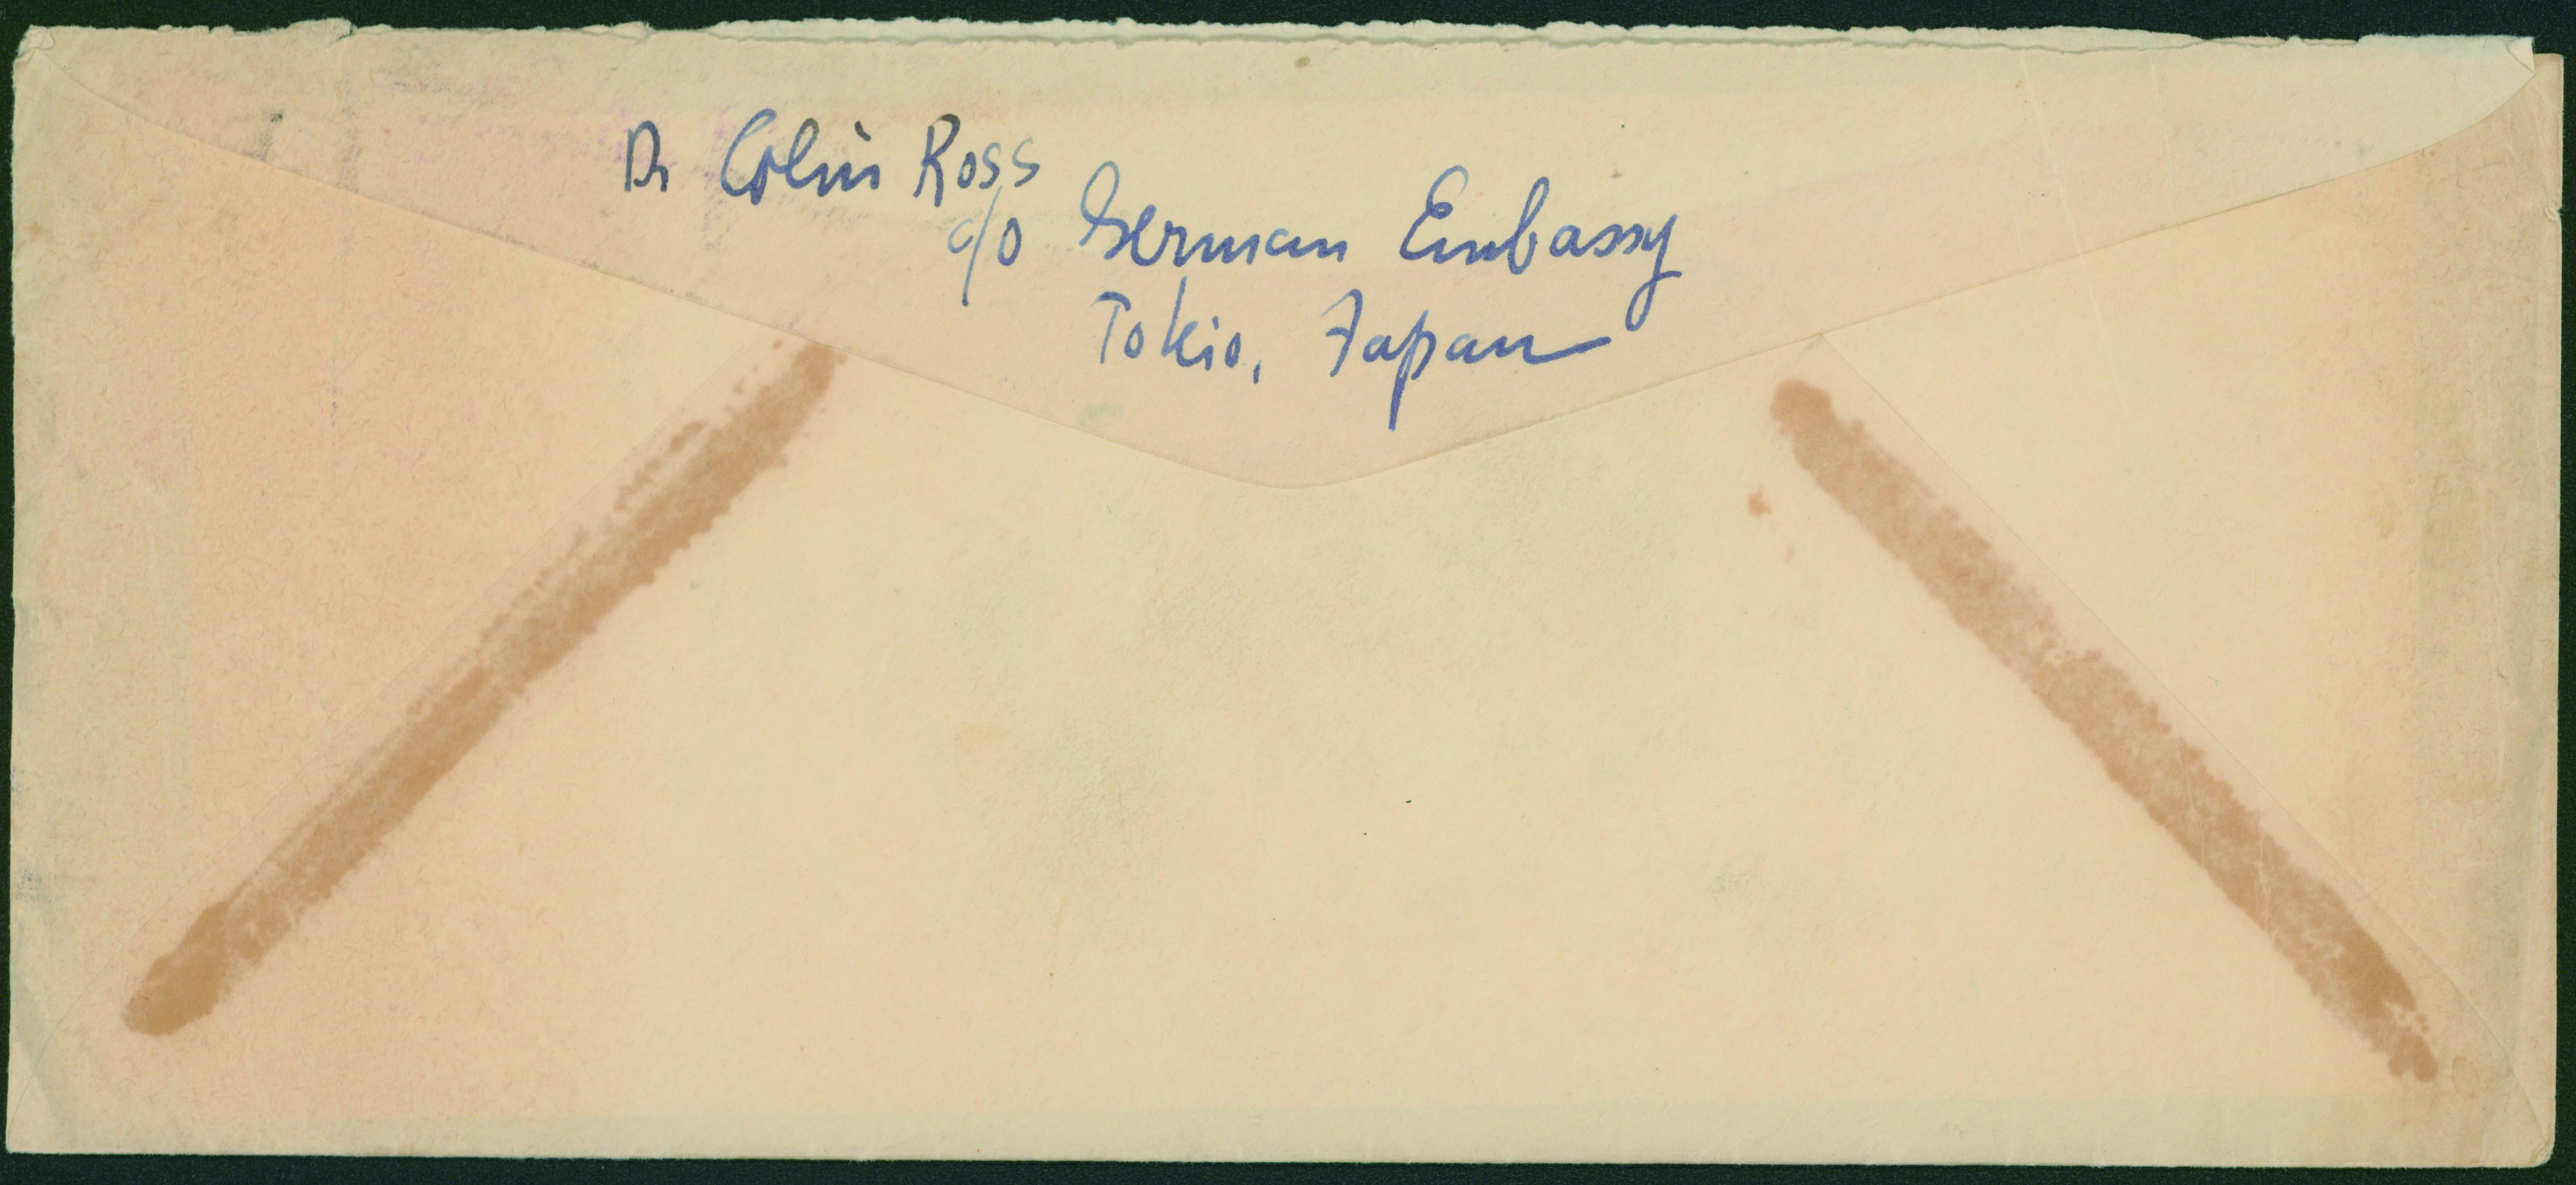 Dr Colin Ross
c/o German Embassy
Tokio, Japan